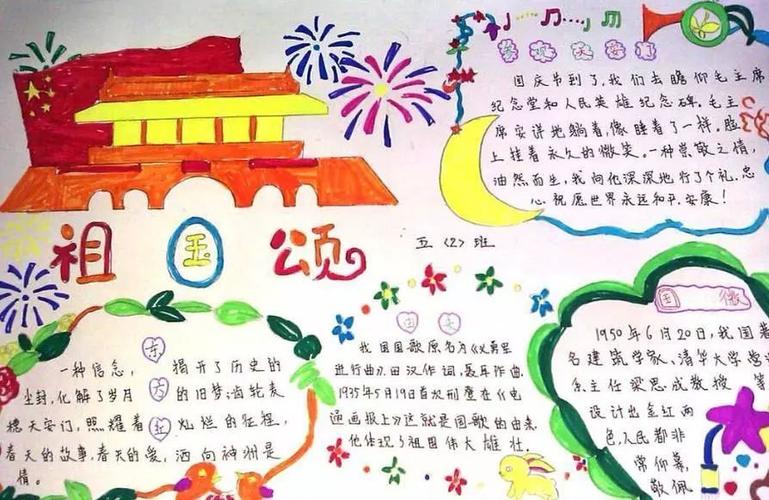 祖国颂
五〈2〉班
国庆节到了,我们去瞻仰毛主席
纪念堂和人民英雄纪念碑。毛主
席安详地躺着,像睡着了一样,脸
上挂着永久的微笑。一种崇敬之情,
油然而生,我向他深深地行了个礼。忠
心祝愿世界永远和平、安康!
东方红
一种信念,揭开了历史的
尘封,化解了岁月的旧梦;齿轮麦
穗天安门,照耀着灿烂的征程,
春天的故事,春天的爱,洒向神洲是
情。
我国国歌原名为《义勇军
进行曲》,田汉作词,聂耳作曲
1935年5月19日首次刊登在《电
通画报上》这就是国歌的由来
他体现了祖国伟大雄壮.
国徽
1950年6月20日,我国著
名建筑学家、清华大学营
系主任梁思成教授
设计出金红两
色,人民都非
常仰慕,
敬佩